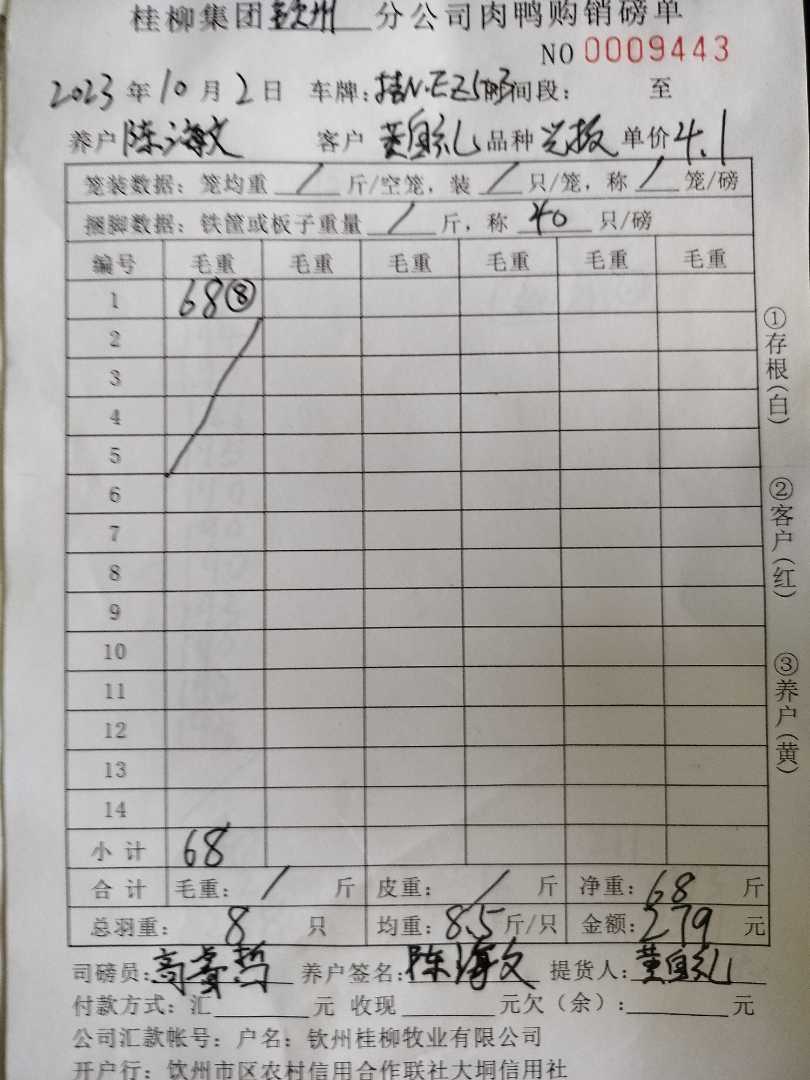 桂柳集团钦州分公司肉鸭购销磅单
NO 0009443
2023年10月2日 车牌: 时间段: 至
养户 陈海文 客户 黄宜礼 品种 单价 4.1
笼装数据：笼均重 / 斤/空笼，装 / 只/笼，称 / 笼/磅
捆脚数据：铁筐或板子重量 / 斤，称 40 只/磅
编号 毛重 毛重 毛重 毛重 毛重 毛重
1 68⑧
2
3
4
5
6
7
8
9
10
11
12
13
14
小计 68
合计 毛重： / 斤 皮重： / 斤 净重：68 斤
总羽重： 8 只 均重：8.5斤/只 金额：279 元
司磅员： 养户签名：陈海文 提货人：黄宜礼
付款方式：汇 元 收现 元欠（余）： 元
公司汇款帐号：户名：钦州桂柳牧业有限公司
开户行：钦州市区农村信用合作联社大垌信用社
①存根(白)
②客户(红)
③养户(黄)